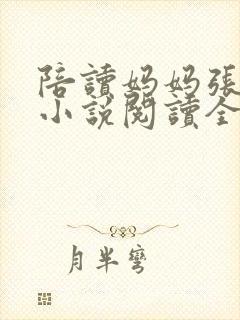 陪讀妈妈張
小說閱讀全
月半彎